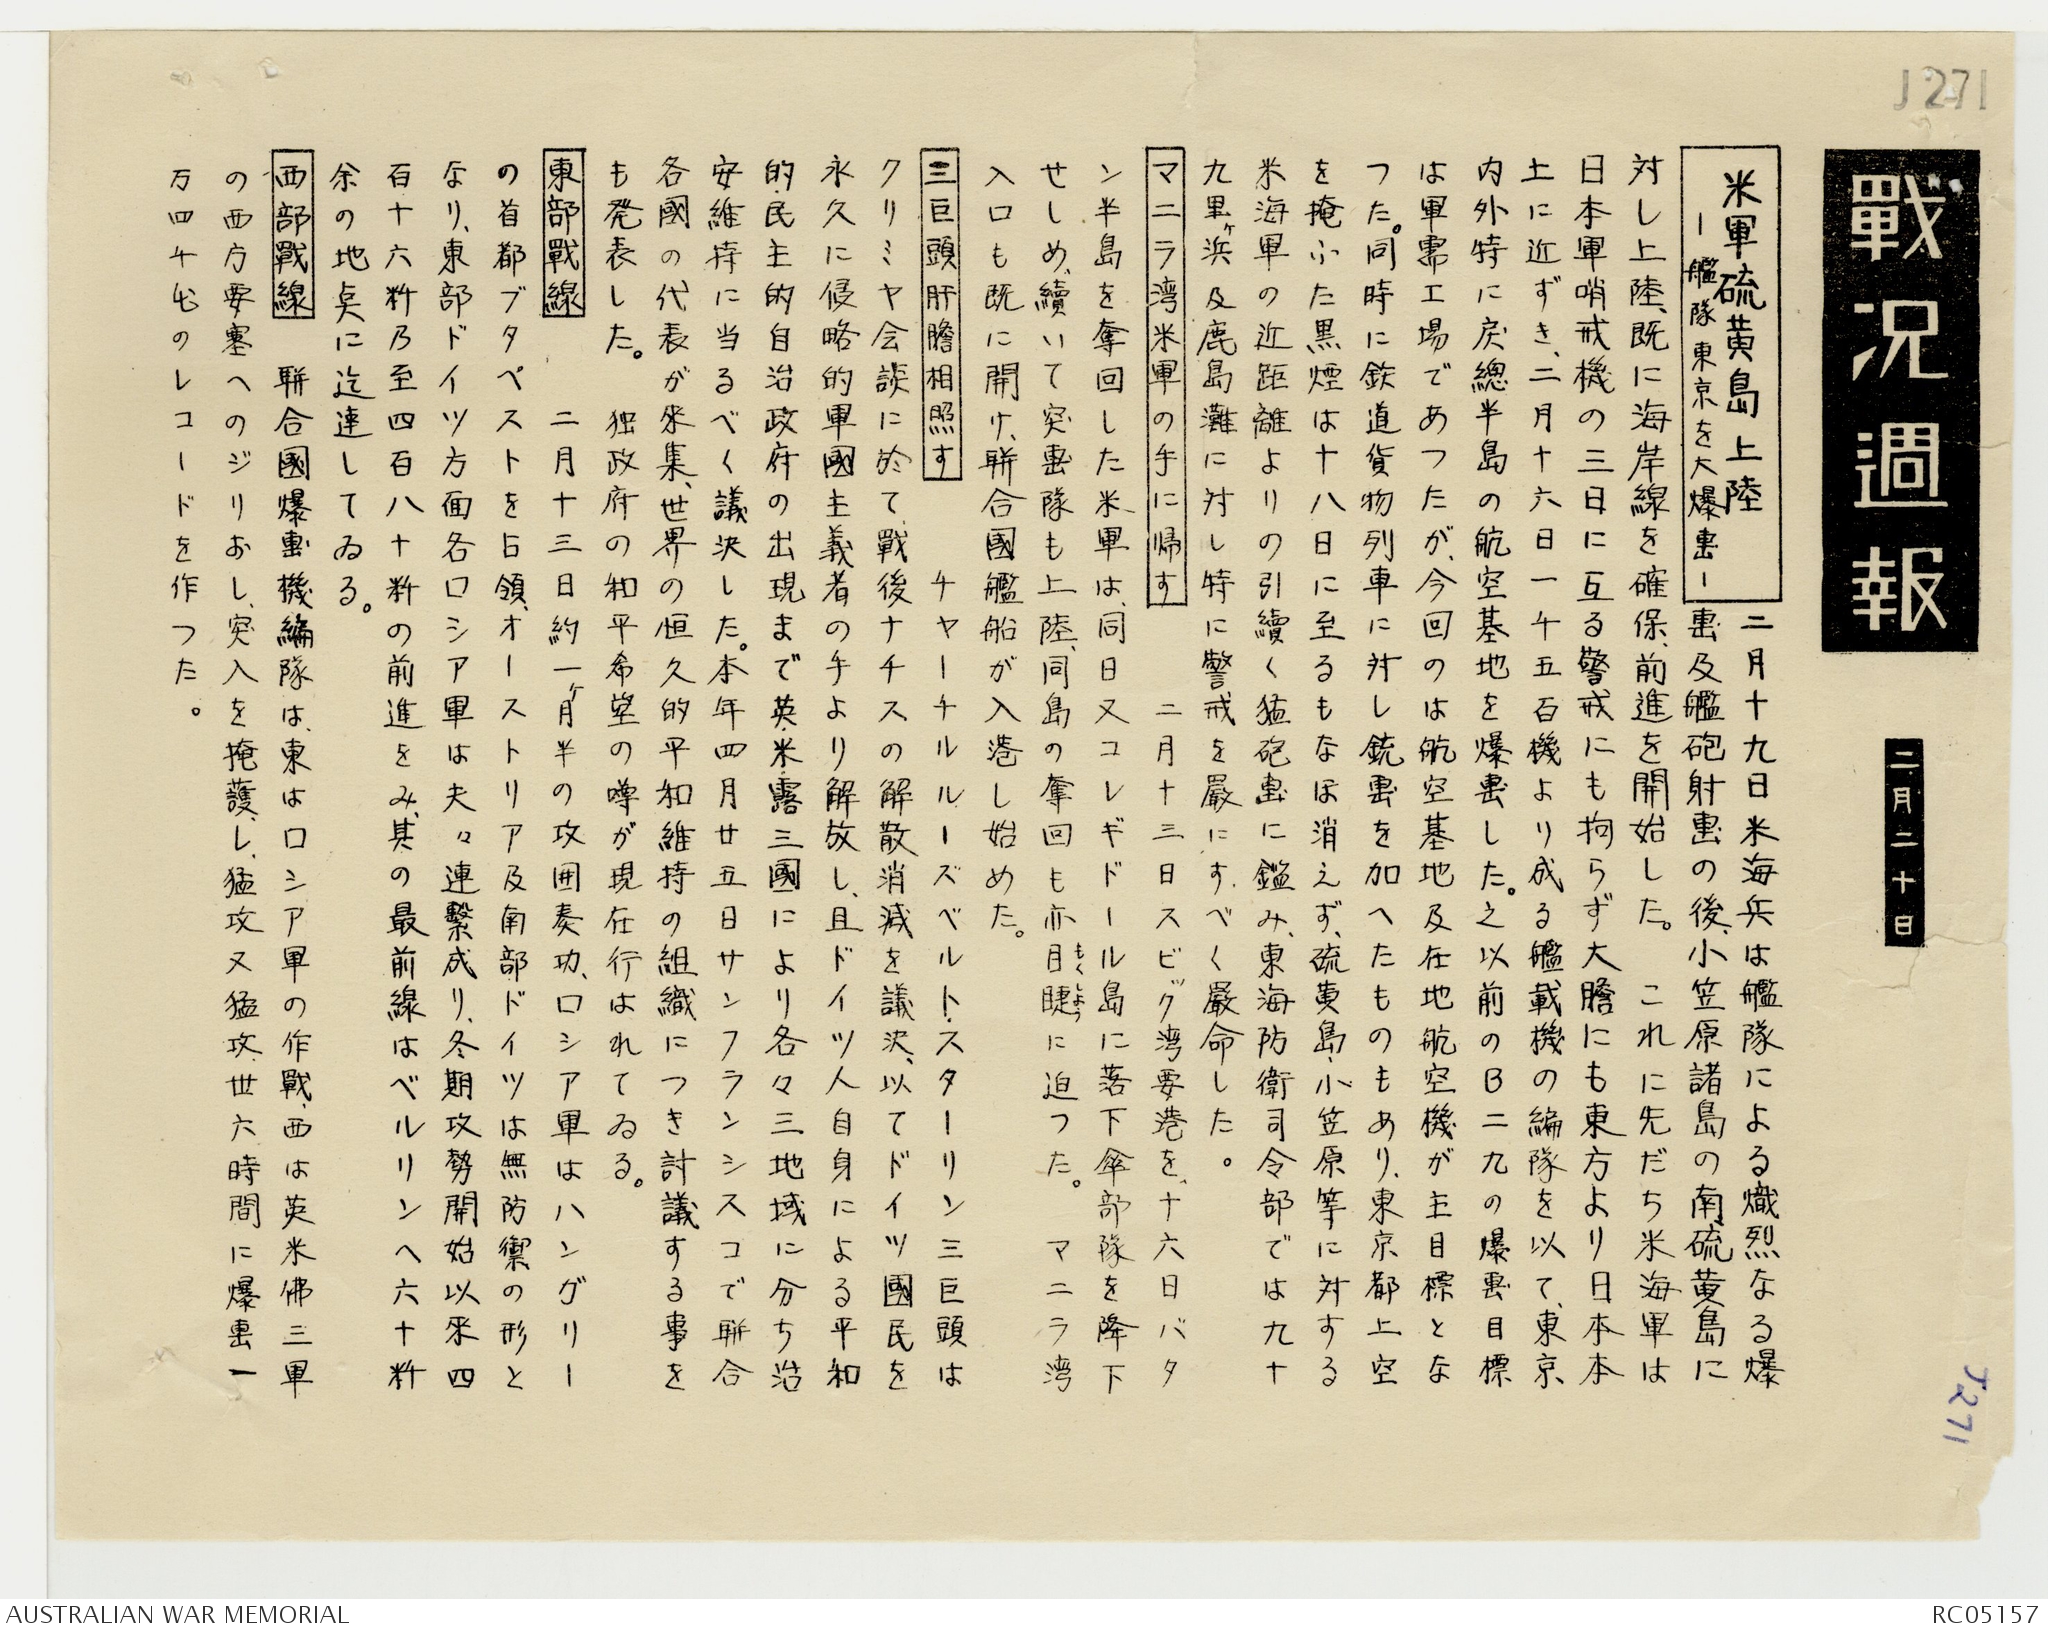 J271
戰況週報
二月二十日
米軍硫黄島上陸
ー艦隊東京を大爆撃ー
二月十九日米海兵は艦隊による熾烈なる爆
撃及艦砲射撃の後、小笠原諸島の南硫黄島に
対し上陸、既に海岸線を確保、前進を開始した。 これに先だち米海軍は
日本軍哨戒機の三日に亙る警戒にも拘らず大膽にも東方より日本本
土に近ずき、二月十六日一千五百機より成る艦載機の編隊を以て、東京
内外特に房總半島の航空基地を爆撃した。之以前のB二九の爆撃目標
は軍需工場であつたが、今回のは航空基地及在地航空機が主目標とな
つた。同時に鉄道貨物列車に対し銃撃を加へたものもあり、東京都上空
を掩ふた黒煙は十八日に至るもなほ消えず、硫黄島・小笠原等に対する
米海軍の近距離よりの引續く猛砲撃に鑑み、東海防衛司令部では九十
九里ヶ浜及鹿島灘に対し特に警戒を嚴にすべく嚴命した。
マニラ湾米軍の手に帰す
二月十三日スビック湾要港を、十六日バタ
ン半島を奪回した米軍は、同日又コレギドール島に落下傘部隊を降下
せしめ、續いて突撃隊も上陸、同島の奪回も亦目睫に迫つた。 マニラ湾
もくしよう
入口も既に開け、聯合國艦船が入港し始めた。
三巨頭肝膽相照す
チヤーチル・ルーズベルト・スターリン三巨頭は
クリミヤ会談に於て、戰後ナチスの解散消滅を議決、以てドイツ國民を
永久に侵略的軍國主義者の手より解放し、且ドイツ人自身による平和
的・民主的自治政府の出現まで英・米・露三國により各々三地域に分ち治
安維持に当るべく議決した。本年四月廿五日サンフランシスコで聯合
各國の代表が來集、世界の恒久的平和維持の組織につき討議する事を
も発表した。 独政府の和平希望の噂が現在行はれてゐる。
東部戰線
二月十三日約一ヶ月半の攻囲奏功、ロシア軍はハングリー
の首都ブタペストを占領、オーストリア及南部ドイツは無防禦の形と
なり、東部ドイツ方面各ロシア軍は夫々連繫成り、冬期攻勢開始以來四
百十六粁乃至四百八十粁の前進をみ、其の最前線はベルリンへ六十粁
余の地奌に迄達してゐる。
西部戰線
聯合國爆撃機編隊は、東はロシア軍の作戰、西は英米佛三軍
の西方要塞へのジリおし、突入を掩護し、猛攻又猛攻、卅六時間に爆撃一
万四千屯のレコードを作つた。
J271
AUSTRALIAN WAR MEMORIAL
RC05157